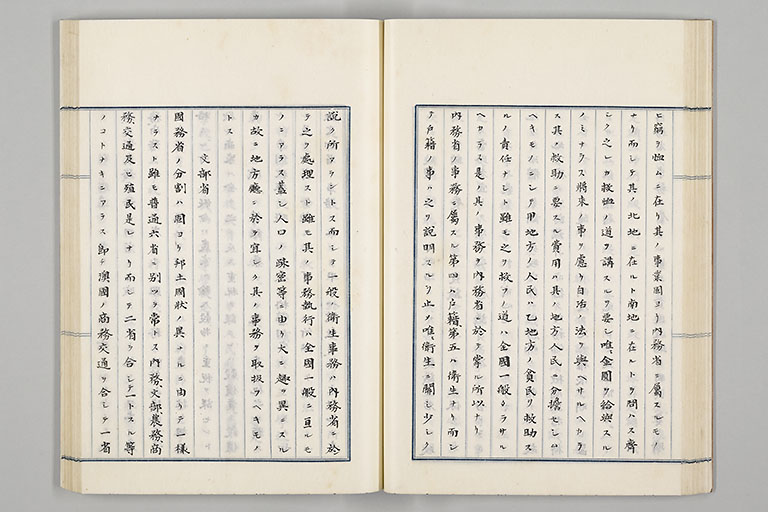 ヒ窮ヲ恤ムニ在リ其ノ事業固ヨリ内務省ニ屬スルモノ
ナリ而シテ其ノ北地ニ在ルト南地ニ在ルトヲ問ハス齊
シク之レカ救恤ノ道ヲ講スルヲ要シ唯金圓ヲ給與スル
ノミナラス將來ノ事ヲ慮リ自治ノ法ヲ與ヘサルヘカラ
ス其ノ救助ニ要スル費用ハ其ノ地方人民ニ分擔セシム
ヘキモノニシテ甲地方ノ人民ハ乙地方ノ貧民ヲ救助ス
ルノ責任ナシト雖モ之ヲ救フノ道ハ全國一般ナラサル
ヘカラス是レ其ノ事務ヲ内務省ニ於テ掌ル所以ナリ
内務省ノ事務ニ屬スル第四ハ戸籍第五ハ衛生ナリ而シ
テ戸籍ノ事ハ之ヲ説明スルヲ止メ唯衛生ニ關シ少シク
説ク所アラントス而シテ一般ノ衛生事務ハ内務省ニ於
テ之ヲ處理スト雖モ其ノ事務執行ハ全國一般ニ亘ルモ
ノニアラス蓋シ人口ノ疎密等ニ由リ大ニ趣ヲ異ニスル
カ故ニ地方廳ニ於テ宜シク其ノ事務ヲ取扱フヘキモノ
トス
文部省
國務省ノ分割ハ固ヨリ邦土國狀ノ異ナルニ由リテ一樣
ナラスト雖モ普通六省ニ別ツヲ常トス内務、文部農務商
務交通及ヒ殖民是レナリ而シテ二省ヲ合シテ一トスル等
ノコトナキニアラス即チ澳國ノ商務交通ヲ合シテ一省